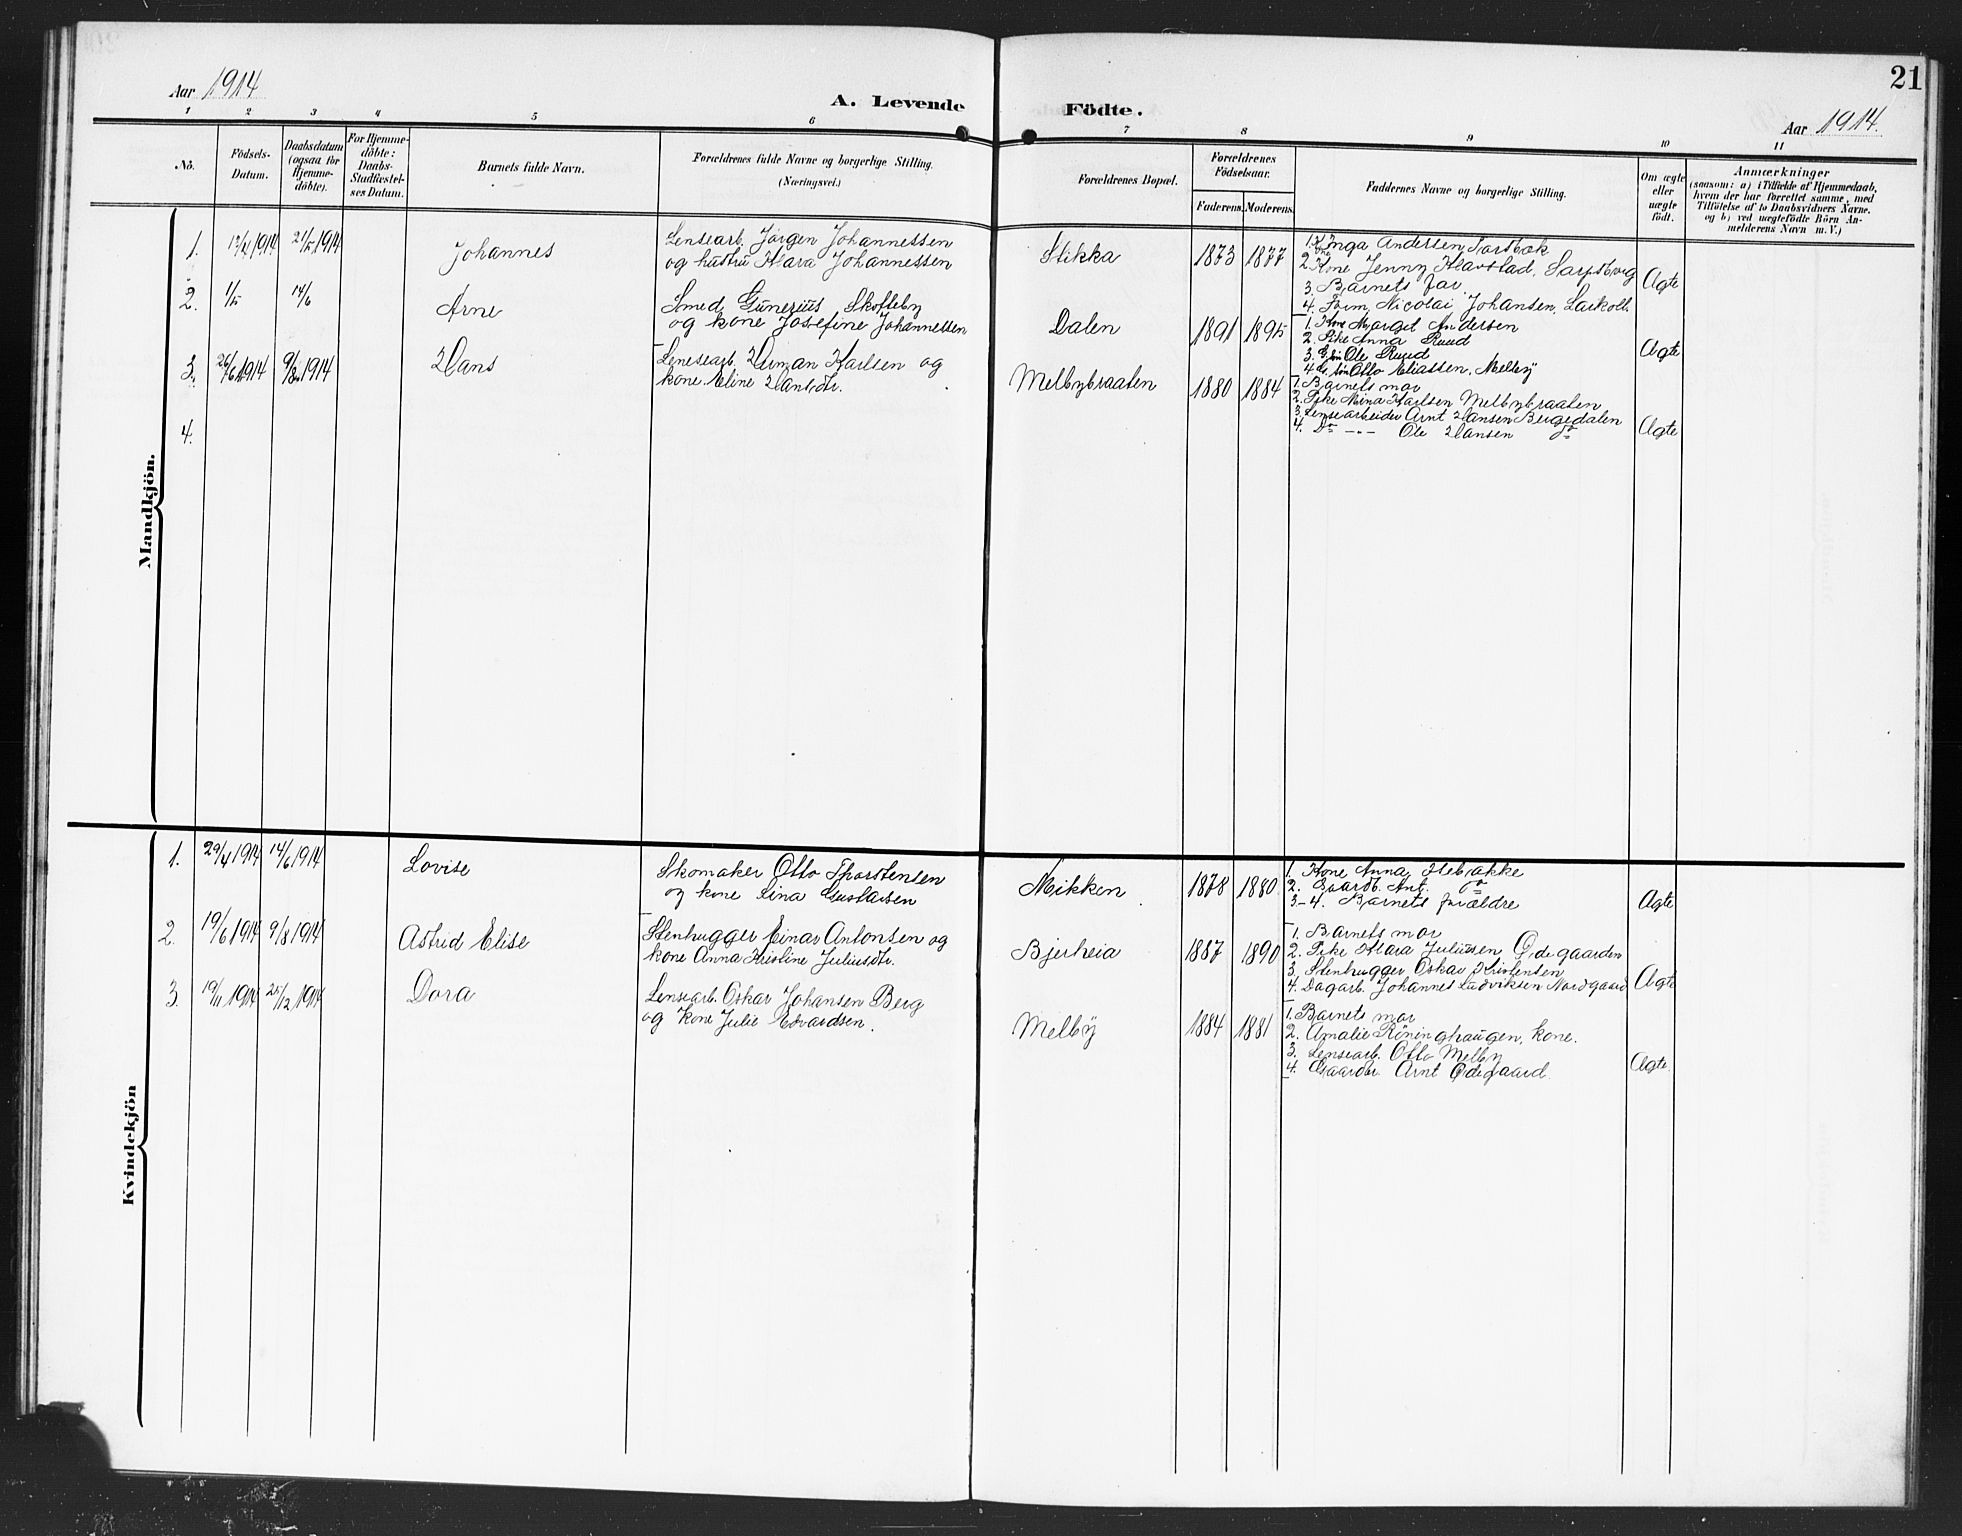 21
Aar 1914
A. Levende Födte.
Aar 1914.
1 2 3 4 5 6 7 8 9 10 11
Nö.
Födsels-
Datum.
Daabsdatum
(ogsaa for
Hjemme-
döbte).
For Hjemme-
döbte:
Daabs-
Stadfæstel-
ses Datum.
Barnets fulde Navn.
Forældrenes fulde Navne og borgerlige Stilling.
(Næringsvei.)
Forældrenes Bopæl.
Forældrenes
Födselsaar.
Faderens. Moderens.
Faddernes Navne og borgerlige Stilling.
Om ægte
eller
uægte
födt.
Anmærkninger
(saasom: a) i Tilfælde af Hjemmedaab,
hvem der har forrettet samme, med
Tilföielse af to Daabsvidners Navne.
og b) ved uægtefödte Börn An-
melderens Navn m. V.)
Mandkjön.
1. 1914 21/5 1914 Johannes
Lensearb. Jørgen Johannessen
og hustru Klara Johannessen
Stikka 1873 1877
1. Inga Andersen,
2. Kone Jenny Klavstad, Sarpsborg
3. Barnets far
4. Nicolai Johansen, Larkoll.
Ægte
2. 1/5 14/6 Arne
Smed Gunerius Skofteby
og kone Josefine Johannessen
Dalen 1891 1895
1. Kone Margit Andersen
2. Pike Anna Ruud
3. Ole Ruud
4. Otto Eliassen, Melby
Ægte
3. 26/6 1914 9/8 1914 Hans
Lensearb. Herman Karlsen og
kone Eline Hansdtr.
Melbybraaten 1880 1884
1. Barnets mor
2. Pike Mina Karlsen Melbybraaten
3. Lensearbeider Arnt Hansen Bergedalen
4. Do -"- Ole Hansen do
Ægte
4.
Kvindekjön
1. 29/4 1914 14/6 1914 Lovise
Skomaker Otto Thorstensen
og kone Lina Gustavsen
Mikken 1878 1880
1. Kone Anna Stebrække
2. Gaardb. Ant. do
3-4. Barnets forældre
Ægte
2. 19/6 1914 9/8 1914 Astrid Elise
Stenhugger Einar Antonsen og
kone Anna Kristine Juliusdtr.
Bjerheia 1887 1890
1. Barnets mor
2. Pike Klara Juliussen Ødegaarden
3. Stenhugger Oskar Kristensen
4. Dagarb. Johannes Ludviksen Nordgaard
Ægte
3. 19/11 1914 25/12 1914 Dora
Lensearb. Oskar Johansen Berg
og kone Julie Edvardsen.
Melby 1884 1881
1. Barnets mor
2. Amalie Røninghaugen, kone.
3. Lensearb. Otto Melby
4. Gaardbr. Arnt Ødegaard
Ægte